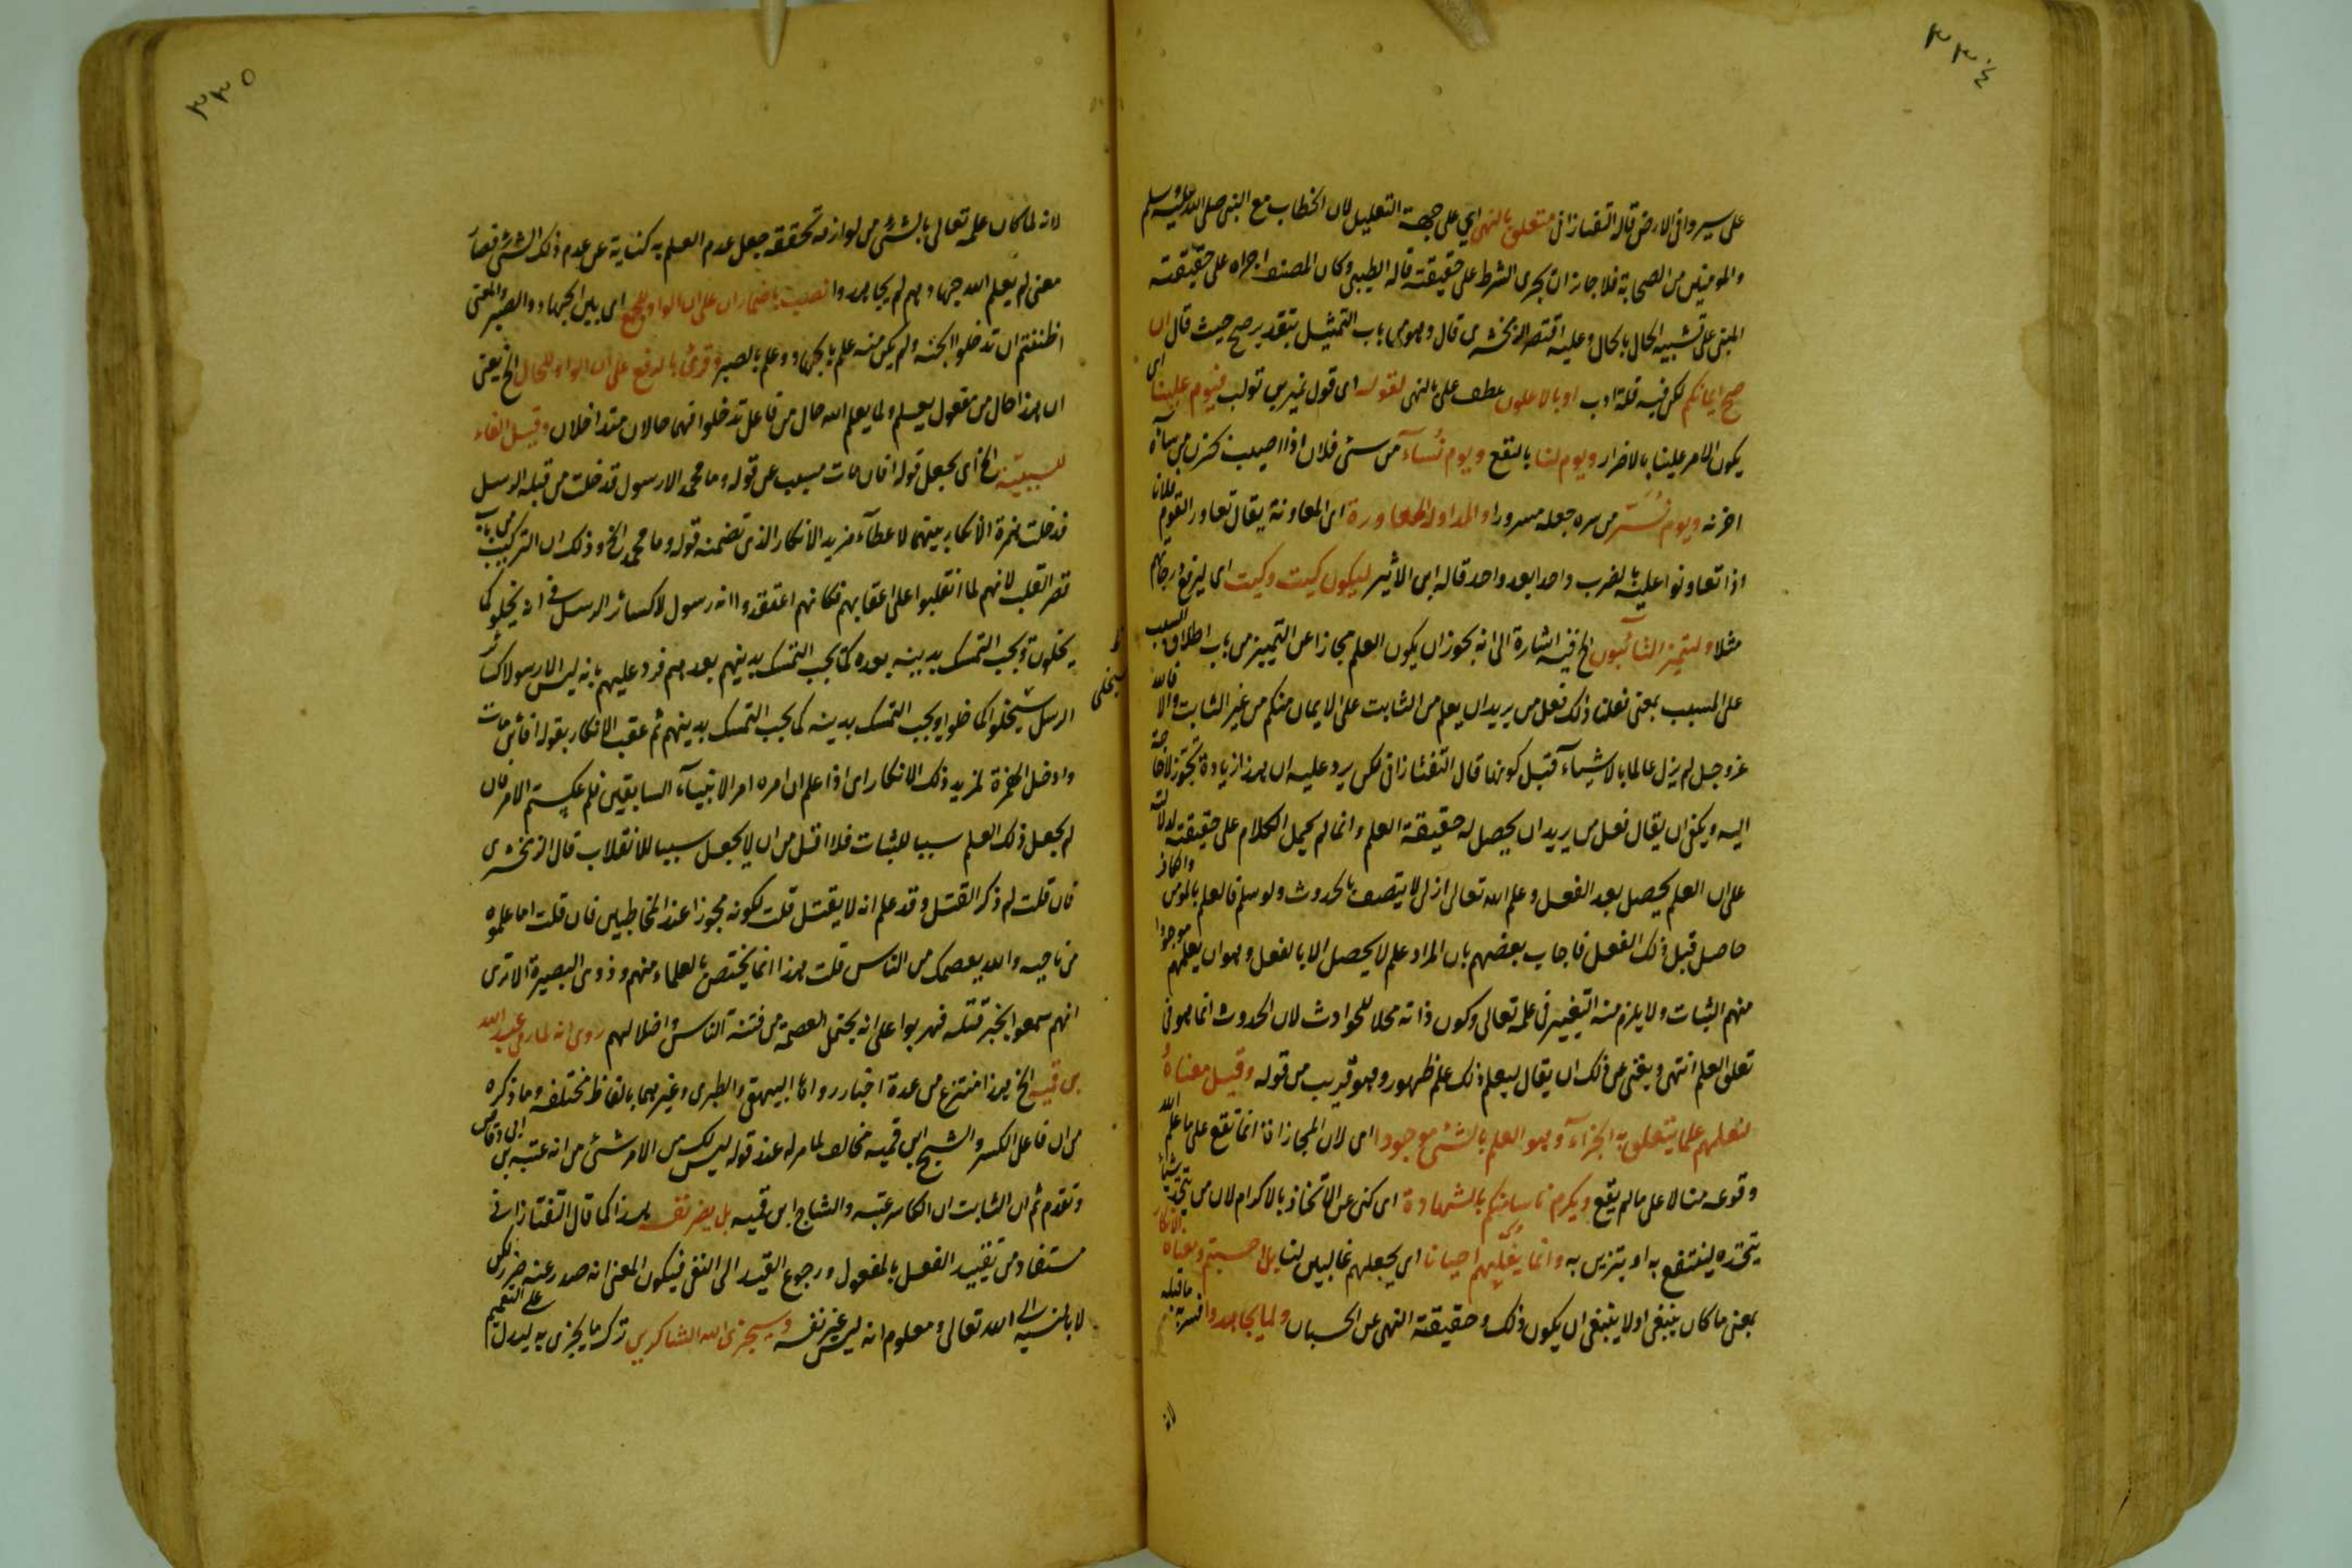 ٣٣٤
على سيروا في الارض قال التفتازاني متعلق بالنهي اي على جهة التعليل لان الخطاب مع النبي صلى الله عليه وسلم
والمومنين من الصحابة فلا جائز ان يجرى الشرط على حقيقته قاله الطيبي وكان المصنف اجراه على حقيقته
المبنى على تشبيه الحال بالحال وعليه اقتصر الزمخشري قال وهو من باب التمثيل بتقدير صح حيث قال ان
صح ايمانكم لكن فيه قلة ادب او بالاعلون عطف على بالنهي لقوله اى قول نمير بن تولب فيوم علينا اى
يكون الامر علينا بالاضرار ويوم لنا بالنفع ويوم نُساء من سىٔ فلان اذا اصيب بحزن من سآه
احزنه ويوم نُسَرّ من سره جعله مسرورا والمداولة المعاورة اى المعاونة يقال تعاور القوم فلانا
اذا تعاونوا عليه بالضرب واحدا بعد واحد قاله ابن الاثير ليكون كيت وكيت اى ليرفع درجاتهم
مثلا وليتميز الثابتون الخ فيه اشارة الى انه يجوز ان يكون العلم مجازا عن التمييز من باب اطلاق السبب
على المسبب بمعنى فعلنا ذلك فعل من يريد ان يعلم من الثابت على الايمان منكم من غير الثابت والا فالله
عز وجل لم يزل عالما بالاشيآء قبل كونها قال التفتازاني لكن يرد عليه ان هذا زيادة تجوز لا حاجة
اليه ويكفى ان يقال فعل من يريد ان يحصل له حقيقة العلم وانما لم يحمل الكلام على حقيقته لدلالته
على ان العلم يحصل بعد الفعل وعلم الله تعالى ازلي لا يتصف بالحدوث ولو سلم فالعلم بالمومن والكافر
حاصل قبل ذلك الفعل فاجاب بعضهم بان المراد علم لا يحصل الا بالفعل وهو ان يعلمهم موجودا
منهم الثبات ولا يلزم منه التغيير في علمه تعالى وكون ذاته محلا للحوادث لان الحدوث انما هو في
تعلق العلم انتهى ويغنى عن ذلك ان يقال ليعلم ذلك علم ظهور وهو قريب من قوله وقيل معناهُ
لنعلهم علما يتعلق به الجزآء وهو العلم بالشئ موجودا اى لان المجازاة انما تقع على ما علم الله
وقوعه منا لا على ما لم يقع ويكرم ناسا منكم بالشهادة اى كنى عن الاتخاذ بالاكرام لان من يتخذ شيأ
يتخذه لينتفع به او يتزين به وانما يغلّبهم احيانا اى يجعلهم غالبين لنا بل احسبتم ومعناه الانكار
بمعنى ما كان ينبغى اولا ينبغى ان يكون ذلك وحقيقته النهى عن الحسبان ولما يجاهدوا فسره ما قبله
لانه
٣٣٥
لانه لما كان علمه تعالى بالشئ من لوازمه تحققه جعل عدم العلم به كناية عن عدم ذلك الشئ فصار
معنى لم يعلم الله جهادهم لم يجاهدوا نصب باضمار ان على ان الواو للجمع اى بين الجهاد والصبر والمعنى
اظننتم ان تدخلوا الجنه ولم يكن منه علم بالجهاد وعلم بالصبر وقرئ بالرفع على ان الواو للحال الخ يعنى
ان هذا حال من مفعول يعلم ولما يعلم الله حال من فاعل تدخلوا فهما حالان متداخلان وقيل الفاء
للسببيّة الخ اى يجعل قوله افان مات مسبب عن قوله وما محمد الا رسول قد خلت من قبله الرسل
فدخلت همزة الانكار بينهما لاعطآء مزيد الانكار الذى تضمنه قوله وما محمد الخ وذلك ان التركيب من باب
قصر القلب لانهم لما انقلبوا على اعقابهم فكانهم اعتقدوا انه رسول لا كسائر الرسل في انه يخلو كما
يخلون ويجب التمسك بدينه بعده كما يجب التمسك بدينهم بعدهم فرد عليهم بانه ليس الا رسولا كسائر
الرسل سيخلو كما خلوا ويجب التمسك بدينه كما يجب التمسك بدينهم ثم عقب الانكار بقوله افائن مات
وادخل الهمزة لمزيد ذلك الانكار اى اذا علم ان امره امر الانبيآء السابقين فلم عكستم الامر فان
لم يجعل ذلك العلم سببا للثبات فلا اقل من ان لا يجعل سببا للانقلاب قال الزمخشرى
فان قلت لم ذكر القتل وقد علم انه لا يقتل قلت لكونه مجوزا عند المخاطبين فان قلت اما علموه
من ناحيه والله يعصمك من الناس قلت هذا انما يختص بالعلماء منهم وذوى البصيرة الا ترى
انهم سمعوا بخبر قتله فهربوا على انه يحتمل العصمة من فتنة الناس واضلالهم روى انه لما رمى عبد الله
بن قميه الخ هذا منتزع من عدة اخبار رواها البيهقى والطبرى وغيرهما بالفاظ مختلفه وما ذكره
من ان فاعل الكسر والشج ابن قميه مخالف لما مر له عند قوله ليس لك من الامر شئ من انه عتبه بن ابى وقاص
وتقدم ثم ان الثابت ان الكاسر عتبه والشاج ابن قميه بل يضر نفسه هذا كما قال التفتازانى
مستفاد من تقييد الفعل بالمفعول ورجوع القيد الى النفى فيكون المعنى انه صدر عنه ضرر لكن
لا بالنسبه الى الله تعالى ومعلوم انه ليس غير نفسه وسيجزى الله الشاكرين ترك ما يجزى به ليدل على التعميم